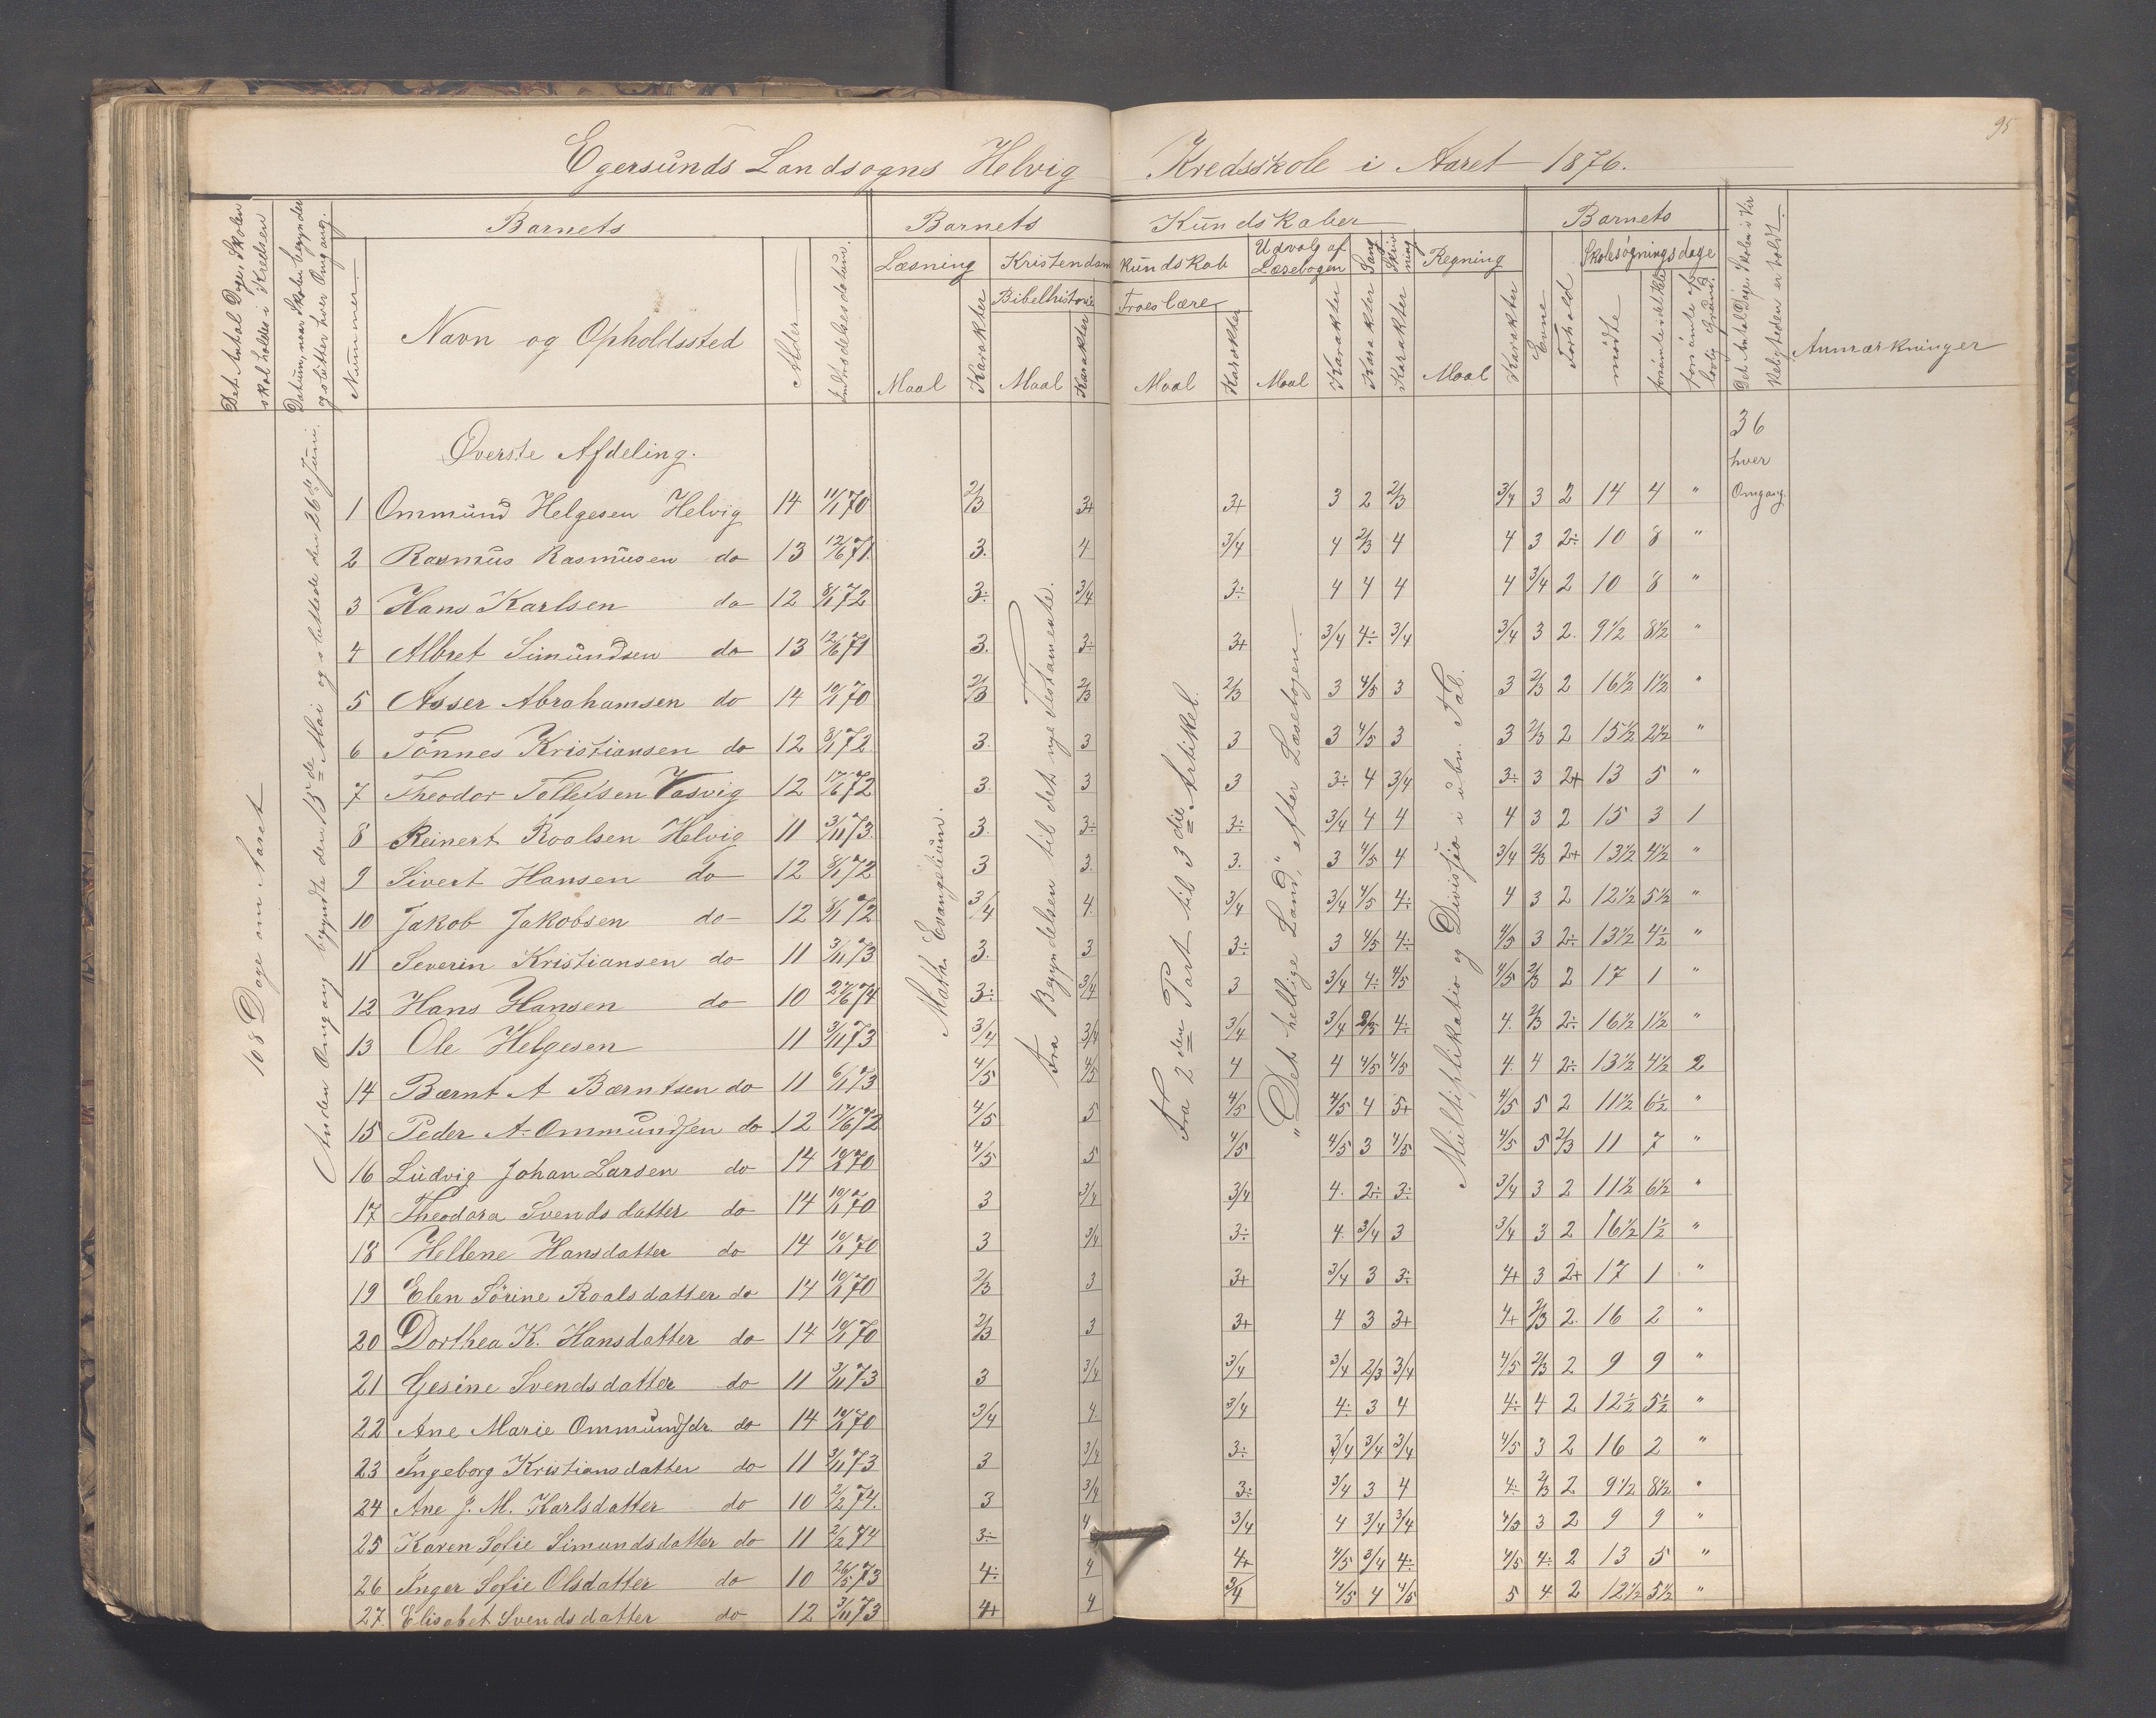 95
Egersunds Landsogns Helvig Kredsskole i Aaret 1876.
Det Antal Dage, Skolen skal holdes i Kredsen
Datum, naar Skolen begynder og slutter hver Omgang.
Nummer
Barnets
Navn og Opholdssted
Alder
Indtrædelsesdatum.
Barnets Kundskaber
Læsning
Maal
Karakter
Kristendomskundskab
Bibelhistorie
Maal
Karakter
Troeslære
Maal
Karakter
Udvalg af Læsebogen
Maal
Karakter
Sang
Karakter
Skrivning
Karakter
Regning
Maal
Karakter
Barnets
Evne
Forhold
Skolesøgningsdage
mødte
forsømte det hele
forsømte af lovlig Grund.
Det Antal Dage, Skolen i Virkeligheden er holdt.
Anmærkninger
108 Dage om Aaret
Anden Omgang begyndte den 15de Mai og sluttede den 26de Juni.
Math. Evangelium.
Fra Begyndelsen til det nye Testamente.
Fra 2den Part til 3die Artikel.
"Det hellige Land," efter Læsebogen.
Multiplikatio og Divisjio i ubn. Tal.
36 hver Omgang.
Øverste Afdeling.
1 Ommund Helgesen Helvig 14 11/1 70 2/3 3+ 3+ 3 2 2/3 3/4 3 2 14 4 "
2 Rasmus Rasmusen do 13 12/6 71 3. 4 3/4 4 2/3 4 4 3 2÷ 10 8 "
3 Hans Karlsen do 12 8/1 72 3÷ 3/4 3÷ 4 4 4 4 3/4 2 10 8 "
4 Albret Simundsen do 13 12/6 71 3. 3÷ 3+ 3/4 4÷ 3/4 3/4 3 2. 9 1/2 8 1/2 "
5 Asser Abrahamsen do 14 10/1 70 2/3 2/3 2/3 3 4/5 3 3 2/3 2 16 1/2 1 1/2 "
6 Tönnes Kristiansen do 12 8/1 72 3. 3 3 3 4/5 3 3 2/3 2 15 1/2 2 1/2 "
7 Theodor Tollefsen Vasvig 12 17/6 72 3. 3 3 3÷ 4 3/4 3÷ 3 2+ 13 5 "
8 Reinert Roalsen Helvig 11 3/11 73. 3. 3÷ 3÷ 3/4 4 4 4 3 2 15 3 1
9 Sivert Hansen do 12 8/1 72 3 3. 3. 3 4/5 4 3/4 2/3 2+ 13 1/2 4 1/2 "
10 Jakob Jakobsen do 12 8/1 72 3/4 4. 3/4 3/4 4/5 4÷ 4 3 2 12 1/2 5 1/2 "
11 Severin Kristiansen do 11 3/11 73 3. 3 3÷ 3 4/5 4÷ 4/5 3 2÷ 13 1/2 4 1/2 "
12 Hans Hansen do 10 27/6 74 3÷ 3/4 3 3/4 4÷ 4/5 4/5 2/3 2 17 1 "
13 Ole Helgesen 11 3/11 73 3/4 3/4 3/4 3/4 2/3 4÷ 4. 2/3 2÷ 16 1/2 1 1/2 "
14 Bærnt A Bærntsen do 11 6/1 73 4/5 4/5 4 4 4/5 4/5 4. 4 2÷ 13 1/2 4 1/2 2
15 Peder A. Ommundsen do 12 17/6 72 4/5 5 4/5 4/5 4 5+ 4/5 5 2 11 1/2 6 1/2 "
16 Ludvig Johan Larsen do 14 10/8 70 4/5 5 4/5 4/5 3 4/5 4/5 5 2/3 11 7 "
17 Theodora Svendsdatter do 14 10/1 70 3 3/4 3/4 4. 2÷ 3÷ 3/4 3 2 11 1/2 6 1/2 "
18 Hellene Hansdatter do 14 10/1 70 3 3/4 3÷ 4. 3/4 3 3/4 3 2 16 1/2 1 1/2 "
19 Elen Sörine Roalsdatter do 14 10/1 70 2/3 3 3+ 3/4 3 3÷ 4+ 3 2+ 17 1 "
20 Dorthea K. Hansdatter do 14 10/1 70 2/3 3 3+ 4 3 3+ 4+ 2/3 2. 16 2 "
21 Gesine Svendsdatter do 11 3/11 73 3 3/4 3/4 3/4 2/3 3/4 4/5 2/3 2 9 9 "
22 Ane Marie Ommundsdr. do 14 10/1 70 3/4 4. 3/4 4÷ 3 4 4÷ 4 2 12 1/2 5 1/2 "
23 Ingeborg Kristiansdatter do 11 3/11 73 3 3/4 3÷ 3/4 3/4 3/4 4/5 3 2 16 2 "
24 Ane J. M. Karlsdatter do 10 2/2 74. 3 3/4 3÷ 3/4 3 4 4÷ 2/3 2 9 1/2 8 1/2 "
25 Karen Sofie Simundsdatter do 11 2/2 74 3÷ 4 3/4 4 3/4 3/4 4/5 3 2 9 9 "
26 Inger Sofie Olsdatter do 10 26/5 73 4÷ 4 4+ 4/5 3/4 4÷ 4/5 4÷ 2 13 5 "
27. Elisabet Svendsdatter do 12 3/11 73 4+ 4 3/4 4/5 4 4/5 5 4 2 12 1/2 5 1/2 "